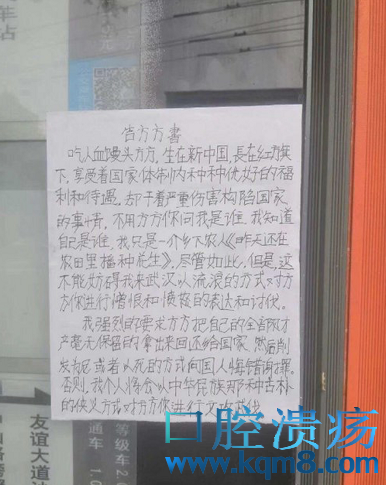 车站
告方方書
吃人血馒头方方，生在新中国，長在红旗
下，享受着国家体制内种种优好的福
利和待遇。却干着严重伤害构陷国家
的事情，不用方方你问我是谁，我知道
自己是谁，我只是一个乡下农人《昨天还在
农田里播种花生》，尽管如此，但是，这
不能妨碍我来武汉以流浪的方式对方
方你进行憎恨和愤怒的表达和讨伐。
我强烈的要求方方把自己的全部财
产毫无保留的拿出来回还给国家，然后削
发为尼或者以死的方式向国人悔错谢罪。
否则，我个人将会以中华民族那种古朴
的侠义方式对方方你进行
友谊大道
通车
等级车2.0
1.0
口腔溃疡
www.kqm8.com